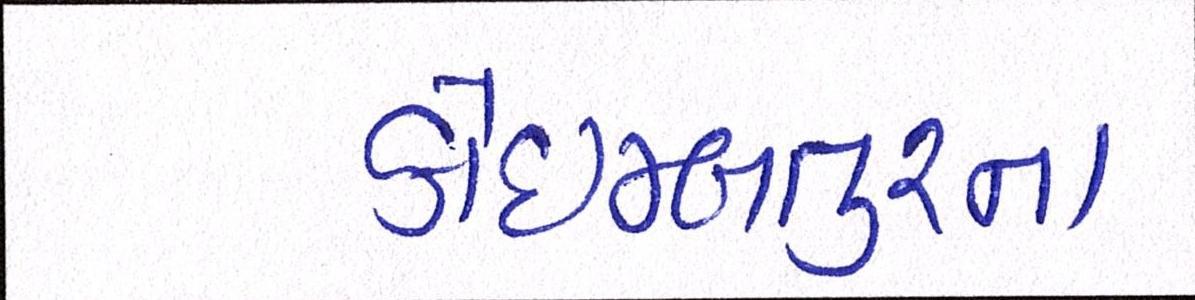 કોઇમ્બાતુરના